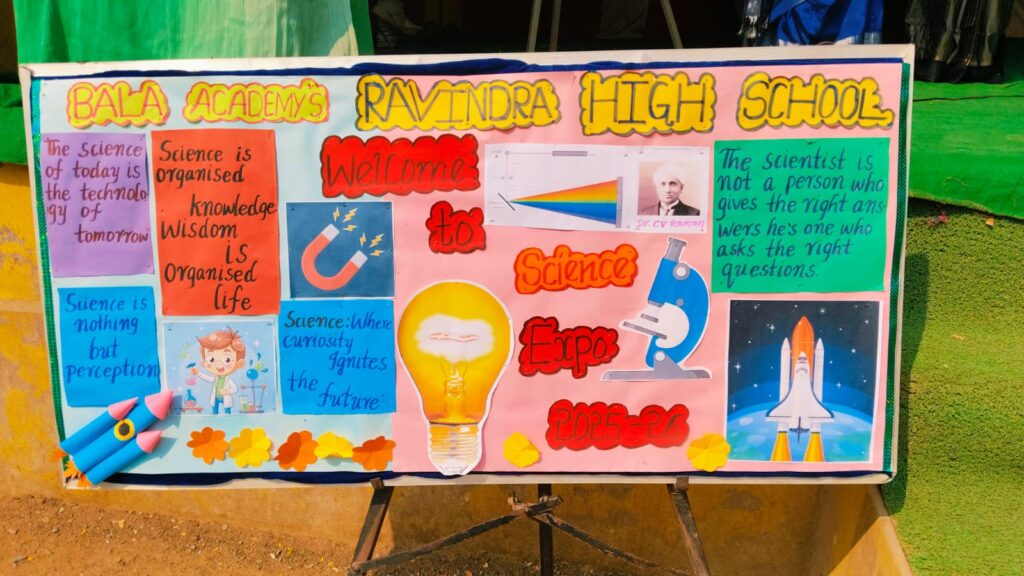 BALA ACADEMY'S RAVINDRA HIGH SCHOOL
The science
of today is
the technolo
gy of
tomorrow
Science is
organised
knowledge
Wisdom
is
Organised
life
Welcome
to
Science
Expo
2025-26
Dr CV Raman
The scientist is
not a person who
gives the right ans
wers he's one who
asks the right
questions.
Science is
nothing
but
perception
Science: Where
curiosity
Ignites
the future